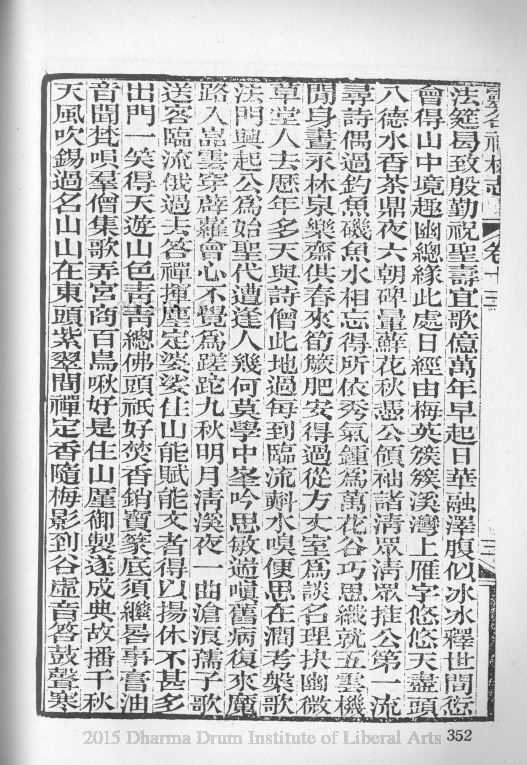 靈谷禪林志 卷十三 三
法筵曷致殷勤祝聖壽宜歌億萬年早起日華融澤腹似冰冰釋世間愆
會得山中境趣幽總緣此處日經由梅英簇簇溪灣上雁字悠悠天盡頭
八德水香茶鼎夜六朝碑暈蘚花秋憑公領袖諸清眾清眾推公第一流
尋詩偶過釣魚磯魚水相忘得所依秀氣鍾為萬花谷巧思織就五雲機
閒身晝永林泉樂齋供春來筍蕨肥安得過從方丈室為談名理抉幽微
草堂人去歷年多天與詩僧此地過每到臨流斟水嗅便思在澗考槃歌
法門興起公為始聖代遭逢人幾何莫學中峯吟思敏遄嗔舊病復來魔
路入嵓雲穿薜蘿會心不覺為蹉跎九秋明月清溪夜一曲滄浪孺子歌
送客臨流俄過去答禪揮麈定婆娑住山能賦能文者得以揚休不甚多
出門一笑得天遊山色青青總佛頭祇好焚香銷寶篆底須繼晷事膏油
音聞梵唄羣僧集歌弄宮商百鳥啾好是住山厪御製遂成典故播千秋
天風吹錫過名山山在東頭紫翠間禪定香隨梅影到谷虛音答鼓聲寒
2015 Dharma Drum Institute of Liberal Arts 352